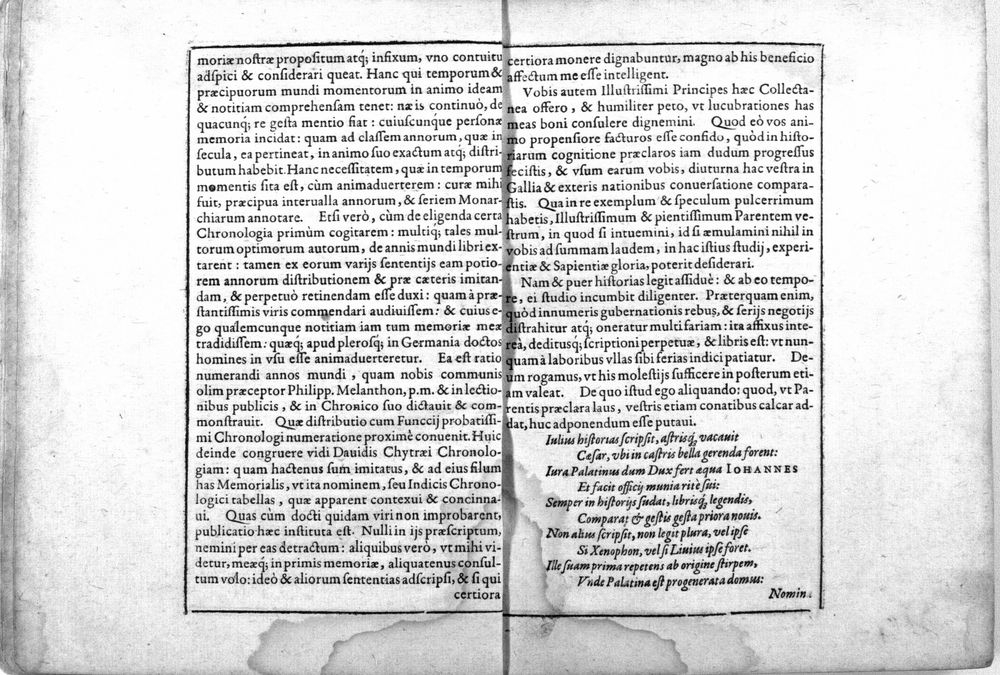 moriæ nostræ propositum atq́; infixum, vno contuitu
adspici & considerari queat. Hanc qui temporum &
præcipuorum mundi momentorum in animo ideam
& notitiam comprehensam tenet: næ is continuò, de
quacunq́; re gesta mentio fiat: cuiuscunq́ue personæ
memoria incidat: quam ad classem annorum, quæ in
secula, ea pertineat, in animo suo exactum atq́; distri-
butum habebit. Hanc necessitatem, quæ in temporum
momentis sita est, cùm animaduerterem: curæ mihi
fuit, præcipua interualla annorum, & seriem Monar-
chiarum annotare. Etsi verò, cùm de eligenda certa
Chronologia primùm cogitarem: multiq́; tales mul-
torum optimorum autorum, de annis mundi libri ex-
tarent: tamen ex eorum varijs sententijs eam potio-
rem annorum distributionem & præ cæteris imitan-
dam, & perpetuò retinendam esse duxi: quam à præ-
stantissimis viris commendari audiuissem: & cuius e-
go qualemcunque notitiam iam tum memoriæ meæ
tradidissem: quæq́; apud plerosq́; in Germania doctos
homines in vsu esse animaduerteretur. Ea est ratio
numerandi annos mundi, quam nobis communis
olim præceptor Philipp. Melanthon, p.m. & in lectio-
nibus publicis, & in Chronico suo dictauit & com-
monstrauit. Quæ distributio cum Funccij probatissi-
mi Chronologi numeratione proximè conuenit. Huic
deinde congruere vidi Dauidis Chytræi Chronolo-
giam: quam hactenus sum imitatus, & ad eius filum
has Memorialis, vt ita nominem, seu Indicis Chrono-
logici tabellas, quæ apparent contexui & concinna-
ui. Quas cùm docti quidam viri non improbarent,
publicatio hæc instituta est. Nulli in ijs præscriptum,
nemini per eas detractum: aliquibus verò, vt mihi vi-
detur, meæq́; in primis memoriæ, aliquatenus consul-
tum volo: ideò & aliorum sententias adscripsi, & si qui
certiora
certiora monere dignabuntur, magno ab his beneficio
affectum me esse intelligent.
Vobis autem Illustrissimi Principes hæc Collecta-
nea offero, & humiliter peto, vt lucubrationes has
meas boni consulere dignemini. Quod eò vos ani-
mo propensiore facturos esse confido, quòd in histo-
riarum cognitione præclaros iam dudum progressus
fecistis, & vsum earum vobis, diuturna hac vestra in
Gallia & exteris nationibus conuersatione compara-
stis. Qua in re exemplum & speculum pulcerrimum
habetis, Illustrissimum & pientissimum Parentem ve-
strum, in quod si intuemini, id si æmulamini nihil in
vobis ad summam laudem, in hac istius studij, experi-
entiæ & Sapientiæ gloria, poterit desiderari.
Nam & puer historias legit assiduè: & ab eo tempo-
re, ei studio incumbit diligenter. Præterquam enim,
quòd innumeris gubernationis rebus, & serijs negotijs
distrahitur atq́; oneratur multifariam: ita affixus inte-
reà, deditusq́; scriptioni perpetuæ, & libris est: vt nun-
quam à laboribus vllas sibi ferias indici patiatur. De-
um rogamus, vt his molestijs sufficere in posterum eti-
am valeat. De quo istud ego aliquando: quod, vt Pa-
rentis præclara laus, vestris etiam conatibus calcar ad-
dat, huc adponendum esse putaui.
Iulius historias scripsit, astrisq́; vacauit
Cæsar, vbi in castris bella gerenda forent:
Iura Palatinus dum Dux fert æqua IOHANNES
Et facit officij munia ritè sui:
Semper in historijs sudat, librisq́; legendis,
Comparat & gestis gesta priora nouis.
Non alius scripsit, non legit plura, vel ipse
Si Xenophon, vel si Liuius ipse foret.
Ille suam prima repetens ab origine stirpem,
Vnde Palatina est progenerata domus:
Nomin.